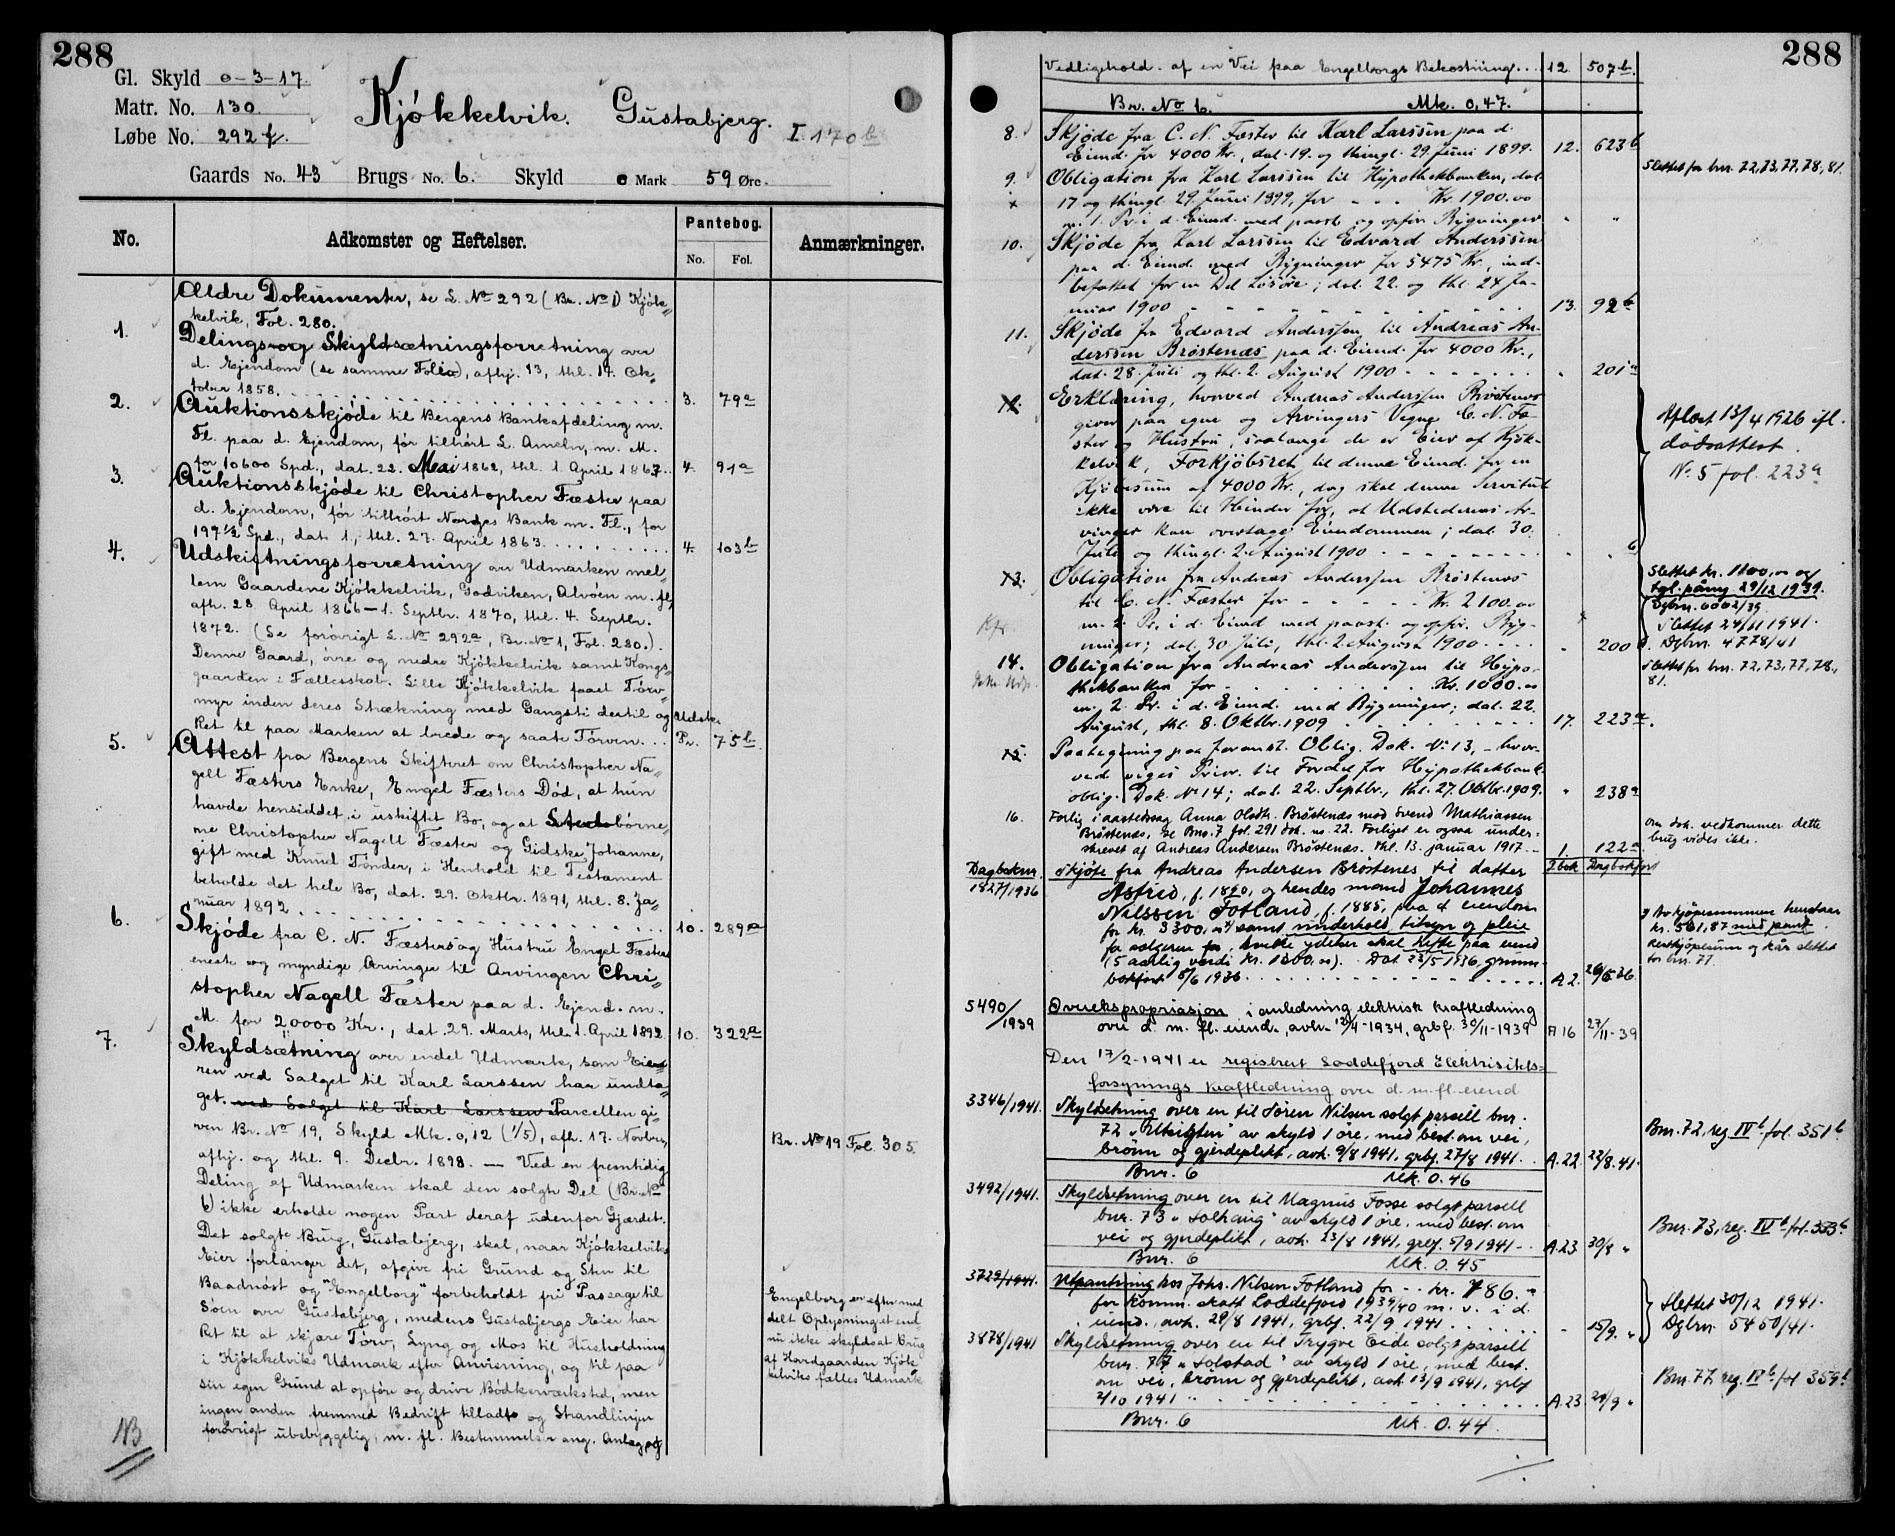 288
Gl. Skyld 0-3-17.
Matr. No. 130
Løbe No. 292 f.
Kjøkkelvik. Gustabjerg. I. 170 b
Gaards No. 43 Brugs No. 6. Skyld 0 Mark 59 Øre.
No. Adkomster og Heftelser. Pantebog. No. Fol. Anmærkninger.
Ældre Dokumenter, se L. No 292 (Br. No 1) Kjøk-
kelvik, Fol. 280.
1. Delings og Skyldsætningsforretning over
d. Ejendom (se samme Folio), afhj. 13, thl. 17. Ok-
tober 1858.
2. Auktionsskjøde til Bergens Bankafdeling m. 3. 79a
Fl. paa d. Ejendom, før tilhørt L. Ameln, m. M.
for 10600 Spd., dat. 22. Mai 1862, thl. 1. April 1863. 4. 91a
3. Auktionsskjøde til Christopher Fæster paa
d. Ejendom, før tilhørt Norges Bank m. Fl., for
197 1/2 Spd., dat. 1., thl. 27. April 1863. 4. 103b
4. Udskiftningsforretning over Udmarken mel-
lem Gaardene Kjøkkelvik, Godviken, Alvøen m. fl,
afh. 28. April 1866 – 1. Septbr. 1870, thl. 4. Septbr.
1872. (Se forøvrigt L. No 292a, Br. No 1, Fol. 280.).
Denne Gaard, øvre og nedre Kjøkkelvik samt Kongs-
gaarden i Fællesskab. Lille Kjøkkelvik faaet Torv-
myr inden deres Strækning med Gangsti dertil og Udsk.
Ret til paa Marken at brede og saate Torven. Pr. 75b
5. Attest fra Bergens Skifteret om Christopher Na-
gell Fæsters Enke, Engel Fæsters Død, at hun
havde hensiddet i uskiftet Bo, og at Stedsbørne-
ne Christopher Nagell Fæster og Gidske Johanne,
gift med Knud Tønder, i Henhold til Testament
beholde det hele Bo, dat. 29. Oktbr. 1891, thl. 8. Ja-
nuar 1892.
6. Skjøde fra C. N. Fæsters og Hustru Engel Fæsters 10. 289a
eneste og myndige Arvinger til Arvingen Chri-
stopher Nagell Fæster paa d. Ejend. m.
M. for 20000 Kr., dat. 29. Marts, thl. 1. April 1892 10. 322a
7. Skyldsætning over endel Udmark, som Eie-
ren ved Salget til Karl Larssen har undta-
get. ved Salget til Karl Larssen Parcellen gi-
ven Br. No 19, Skyld Mk. 0,12 (1/5), afh. 17. Novbr., Br. No 19 Fol. 305.
afhj. og thl. 9. Decbr. 1898. — Ved en fremtidig
Deling af Udmarken skal den solgte Del (Br. No
6) ikke erholde nogen Part deraf udenfor Gjærdet.
Det solgte Brug, Gustabjerg, skal, naar Kjøkkelviks
Eier forlanger det, afgive fri Grund og Sten til
Baadnøst og "Engelborg" forbeholdt fri Passage til
Søen over Gustabjerg, medens Gustabjergs Eier har
Ret til at skjære Torv, Lyng og Mos til Husholdning
i Kjøkkelviks Udmark efter Anvisning, og til paa
sin egen Grund at opføre og drive Bødkerværksted, men
ingen anden fremmed Bedrift tilladt og Strandlinjen
forøvrigt ubebyggelig, m. fl. Bestemmelser ang. Anlæg og
Engelborg er efter med
delt Oplysning et end
nu ikke skyldsat Brug
af Hovdgaarden Kjøk
kelviks fælles Udmark
NB
288
Vedligehold. af en Vei paa Engelborgs Bekostning. 12 507b.
Br. No 6. Mk. 0,47.
8. Skjøde fra C. N. Fæster til Karl Larssen paa d.
Eiend. for 4000 Kr., dat. 19. og thingl. 29. Juni 1899. 12. 623b
9. Obligation fra Karl Larssen til Hypothekbanken, dat. Slettet for bnr. 72, 73, 77, 78, 81.
17 og thingl. 29. Juni 1899, for Kr. 1900.00
m. 1. Pr. i d. Eiend. med paast. og opfør. Bygninger " "
10. Skjøde fra Karl Larssen til Edvard Anderssen
paa d. Eiend. med Bygninger for 5475 Kr., ind-
befattet for en Del Løsøre; dat. 22. og thl. 24 Ja-
nuar 1900 13. 92b
11. Skjøde fra Edvard Anderssen til Andreas An-
derssen Brøstenæs paa d. Eiend. for 4000 Kr.,
dat. 28. Juli og thl. 2. August 1900 " 201a
12. Erklæring, hvorved Andreas Anderssen Brøstenæs
giver paa egne og Arvingers Vegne C. N. Fæ-
ster og Hustru, saalænge de er Eier af Kjøk-
kelvik, Forkjøbsret til denne Eiend. for en
Kjøbesum af 4000 Kr., dog skal denne Servitut
ikke være til Hinder for, at Udstederens Ar-
vinger kan overtage Eiendommen; dat. 30.
Juli og thingl. 2. August 1900 " "b
Aflæst 13/4 1926 ifl.
dødsattest.
No. 5 fol. 223a
13. Obligation fra Andreas Anderssen Brøstenæs
til C. N. Fæster for Kr. 2100.00
m. 2. Pr. i d. Eiend. med paast. og opfør. Byg-
ninger; dat. 30 Juli, thl. 2. August 1900 " 200
Slettet kr. 1100,00 og
tgl. påny 29/12 1939.
Dgbnr. 6002/39
Slettet 24/11 1941.
Dgbnr. 4778/41
14. Obligation fra Andreas Anderssen til Hypo-
thekbanken for Kr. 1000.00
m. 2. Pr. i d. Eiend. med Bygninger; dat. 22.
August, thl. 8. Oktbr. 1909 17. 223a.
slettet for bnr. 72, 73, 77, 78,
81.
15. Paategning paa foranst. Oblig. Dok. No 13, – hvor-
ved viges Prior. til Fordel for Hypothekbank-
oblig. Dok. No 14; dat. 22. Septbr., thl. 27. Oktbr. 1909. " 238a
16. Forlig i aastedssag Anna Olsdtr. Brøstenæs mod Svend Mathiassen
Brøstenæs, se Bno. 7 fol. 291 dok. no. 22. Forliget er ogsaa under-
skrevet af Andreas Andersen Brøstenæs. thl. 13. januar 1917. 1. 122a
om dok. vedkommer dette
brug vides ikke.
Dagboknr.
1827/1936 Skjøte fra Andreas Andersen Brøstenes til datter
Astrid, f. 1890, og hendes mand Johannes
Nilssen Fotland, f. 1885, paa d. eiendom
for kr. 3300,00 samt underhold, tilsyn og pleie
for selgeren for, hvilke ydelser skal hefte paa eiend
(5 aarlig verdi kr. 1800,00). Dat. 23/5 1936, grunn-
bokført 5/6 1936 A 2. 26/5 36
Av kjøpesummen henstaar
kr. 561,87 med pant.
Restkjøpesum og kår slettet
for bnr. 77.
5490/1939 Overekspropriasjon i anledning elektrisk kraftledning
over d. m. fl. eiend., avh. 12/4-1934, grbf. 30/11-1939 A 16 27/11-39
Den 17/2-1941 er registrert Loddefjord Elektrisitets-
forsynings kraftledning over d. m. fl. eiend
3346/1941. Skyldsetning over en til Søren Nilsen solgt parsell bnr.
72 "Utsigten" av skyld 1 øre, med best. om vei,
brønn og gjerdeplikt, avh. 9/8 1941, grbf. 27/8 1941. A. 22 22/8.41.
Bnr. 72, reg. IV b fol. 351 b
Bnr. 6 Mk. 0.46
3492/1941. Skyldsetning over en til Magnus Fosse solgt parsell
bnr. 73 "Solhaug" av skyld 1 øre, med best. om
vei og gjerdeplikt, avh. 23/8 1941, grbf. 5/9 1941 A. 23 30/8 "
Bnr. 73, reg. IV b fol. 353 b
Bnr. 6 Mk. 0.45
3729/1941. Utpantning hos Johs. Nilsen Fotland for kr. 786.-
for komm. skatt Loddefjord 1939/40 m. v. i d.
eiend., avh. 29/8 1941, grbf. 22/9 1941 15/9. "
Slettet 30/12 1941.
Dgbnr. 5450/41.
3878/1941 Skyldsetning over en til Trygve Eide solgt parsell
bnr. 77 "Solstad" av skyld 1 øre, med best.
om vei, brønn og gjerdeplikt, avh. 13/9 1941, grbf
2/10 1941 A. 23. 24/9 "
Bnr. 77 reg. IV b fol 359 b
Bnr. 6 Mk. 0.44.